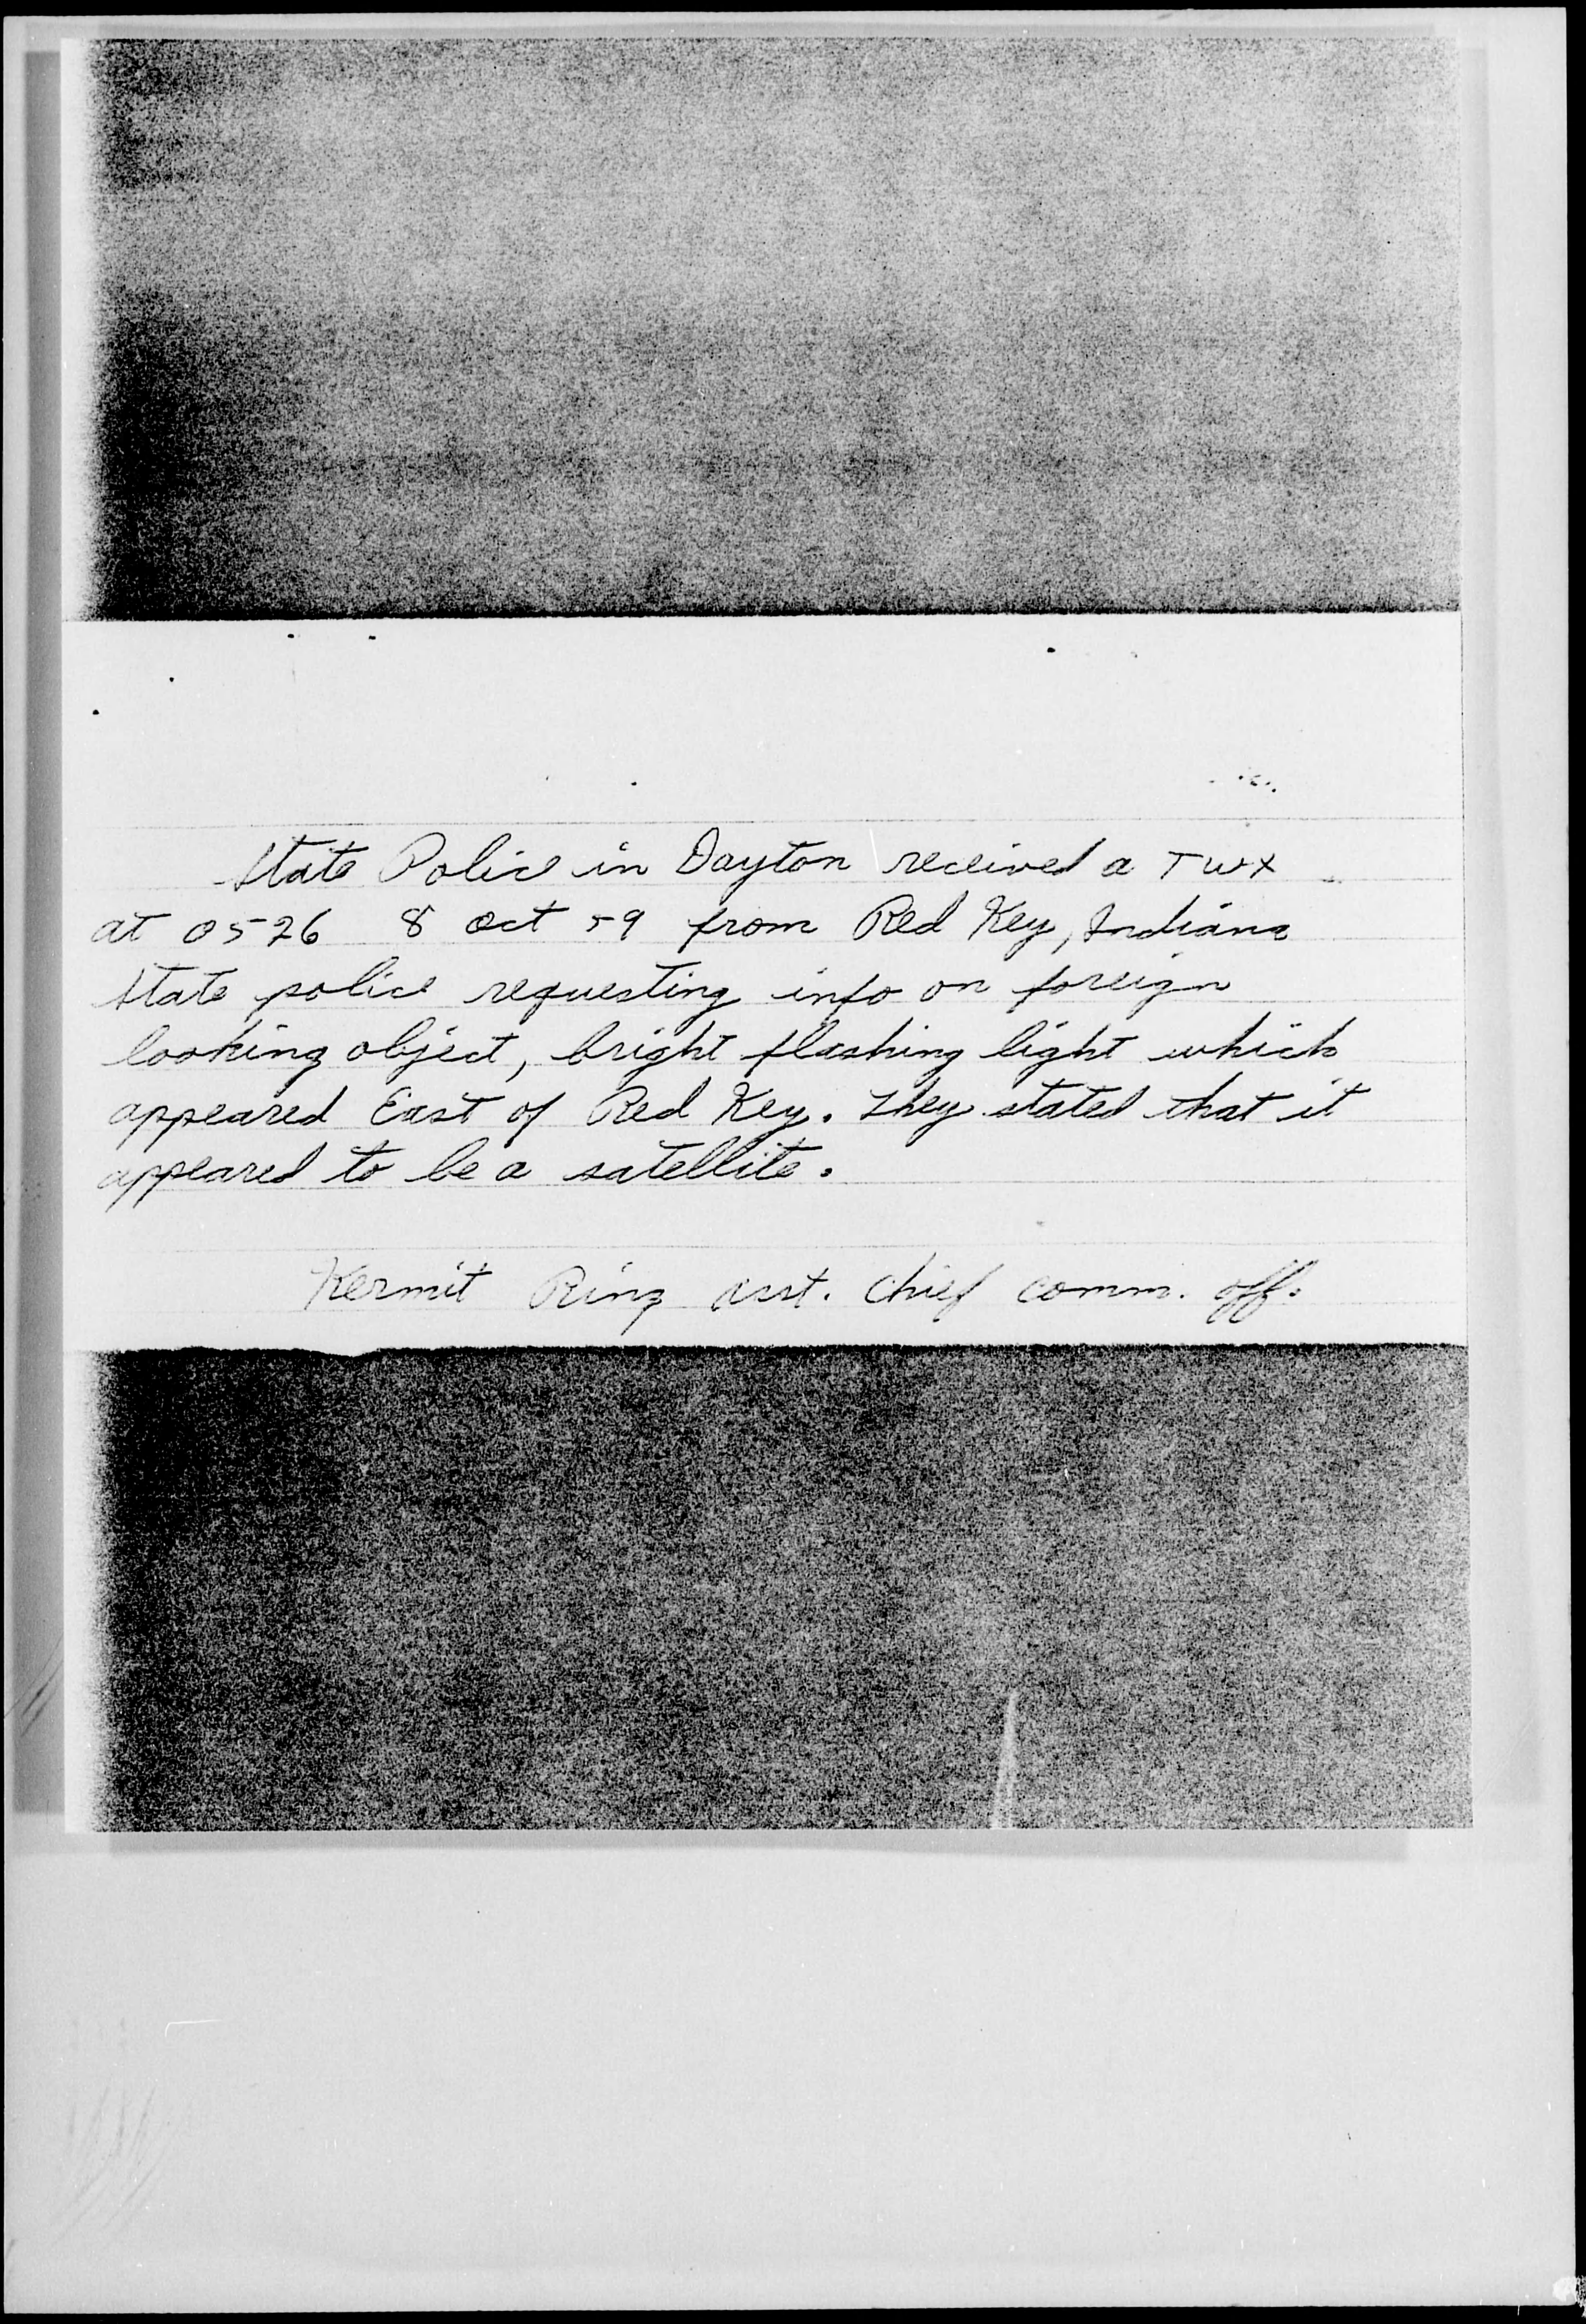 State Police in Dayton received a TWX
at 0526 8 Oct 59 from Red Key, Indiana
State police requesting info on foreign
looking object, bright flashing light which
appeared East of Red Key. They stated that it
appeared to be a satellite.
Kermit Ring asst. Chief comm. off.